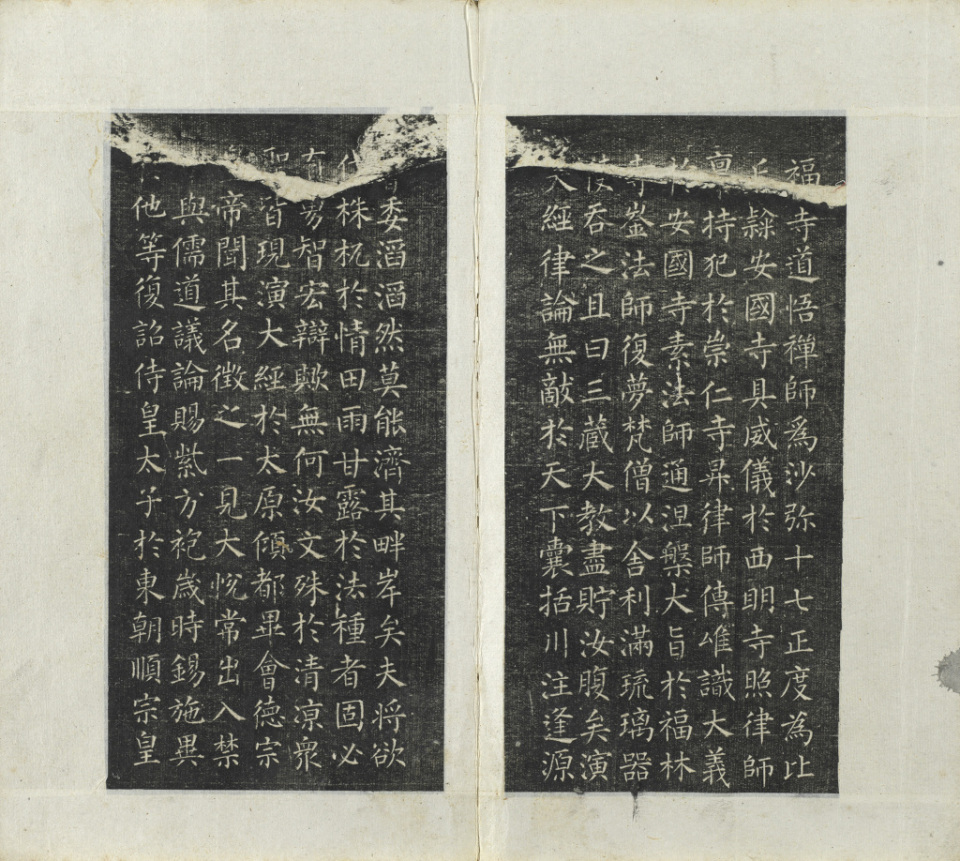 福寺道悟禪師爲沙弥十七正度為比
丘隸安國寺具威儀於西明寺照律師
稟持犯於崇仁寺昇律師傳唯識大義
於安國寺素法師通涅槃大旨於福林
寺崟法師復夢梵僧以舍利滿琉璃器
使吞之且曰三藏大教盡貯汝腹矣演
經律論無敵於天下囊括川注逢源
會委滔滔然莫能濟其畔岸矣夫將欲
伐株杌於情田雨甘露於法種者固必
有勇智宏辯歟無何汝文殊於清涼衆
聖皆現演大經於太原傾都畢會德宗
帝聞其名徵之一見大悅常出入禁
與儒道議論賜紫方袍歲時錫施異
他等復詔侍皇太子於東朝順宗皇